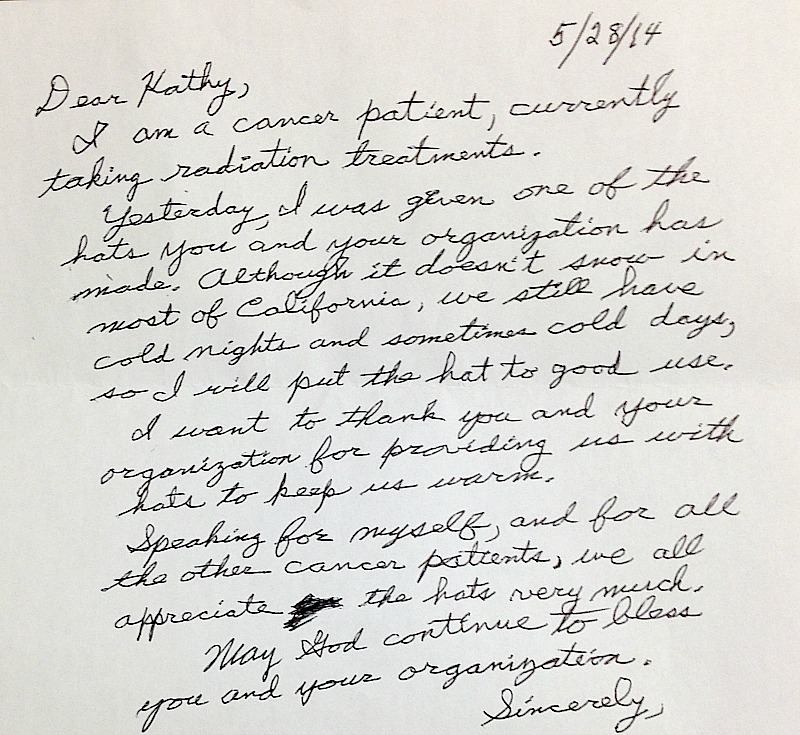 5/28/14
Dear Kathy,
I am a cancer patient, currently
taking radiation treatments.
Yesterday, I was given one of the
hats you and your organization has
made. Although it doesn't snow in
most of California, we still have
cold nights and sometimes cold days,
so I will put the hat to good use.
I want to thank you and your
organization for providing us with
hats to keep us warm.
Speaking for myself, and for all
the other cancer patients, we all
appreciate the hats very much.
May God continue to bless
you and your organization.
Sincerely,